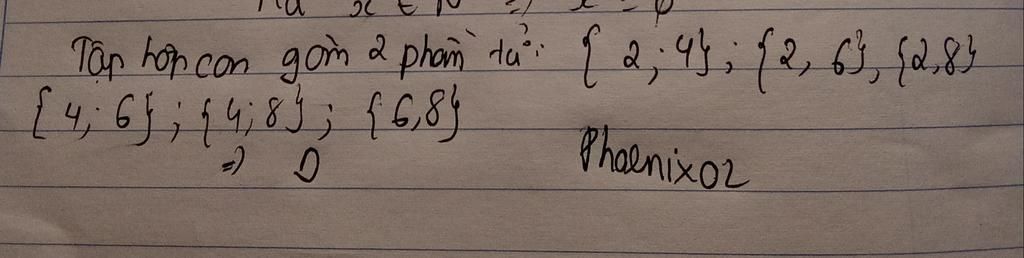 x ∈ N ⇒ x = φ
Tập hợp con gồm 2 phần tử: { 2; 4}; {2, 6}, {2,8}
{ 4; 6}; {4; 8}; {6,8}
⇒ D
Phoenix02